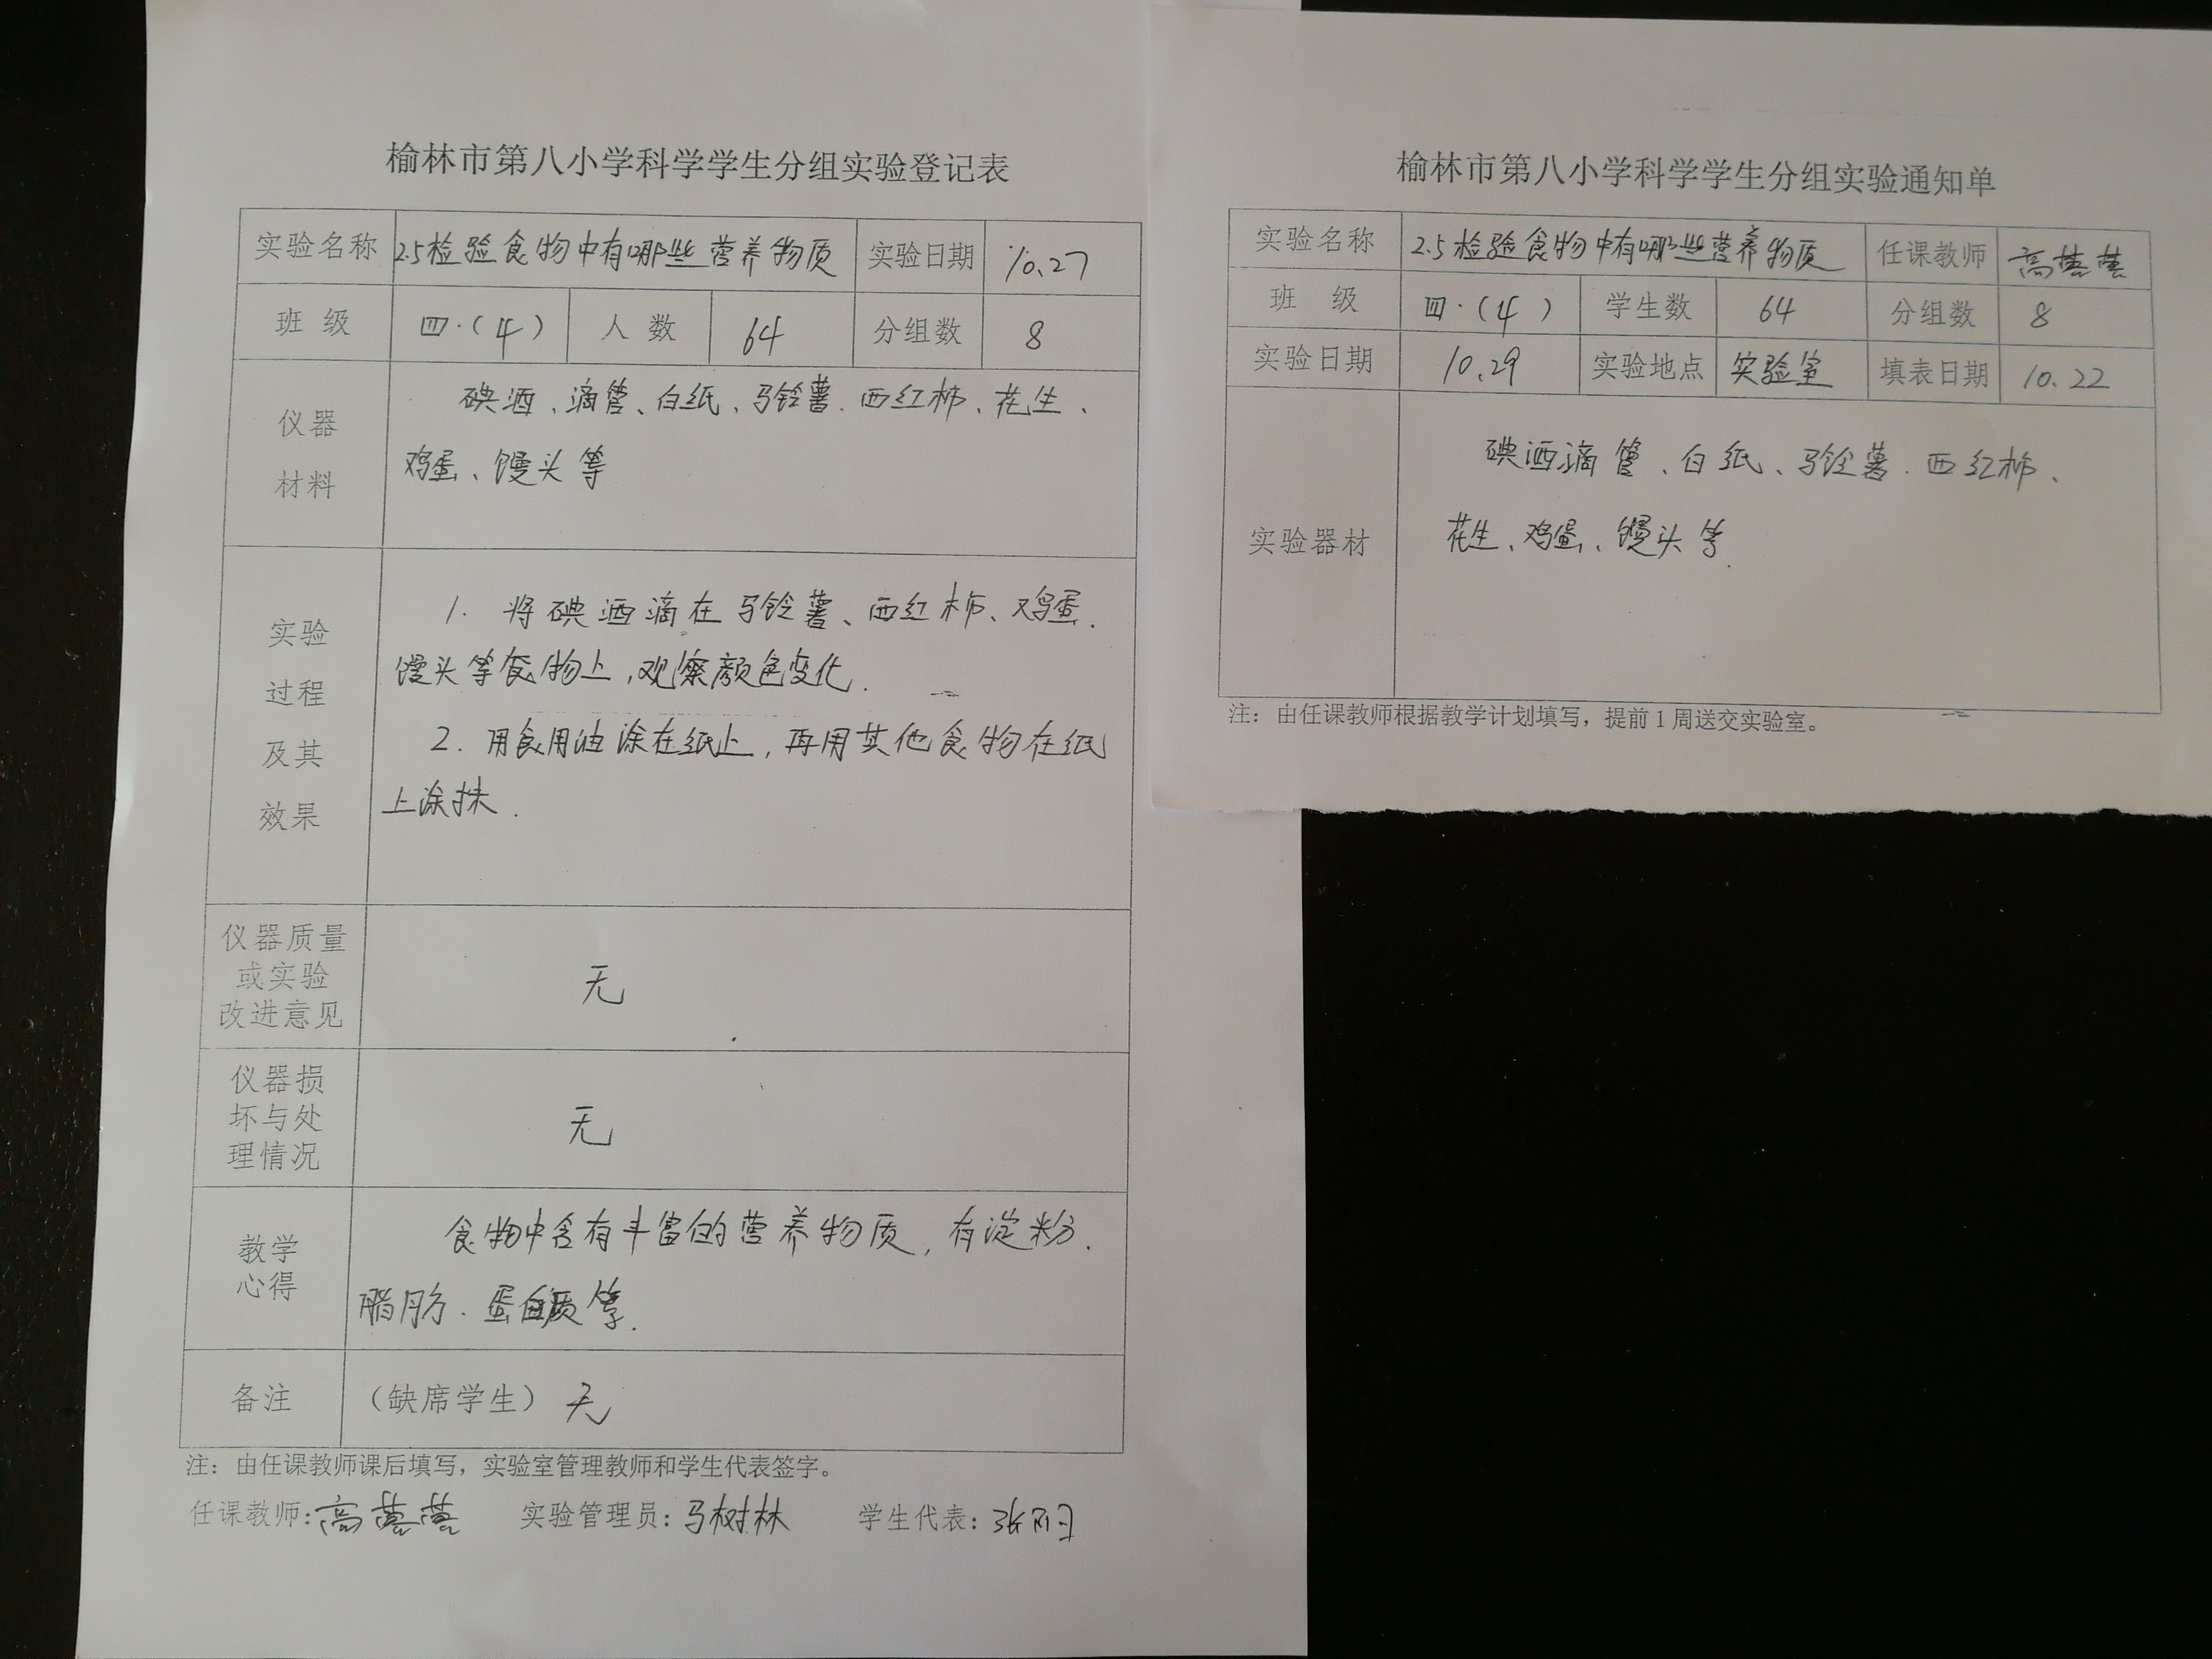 榆林市第八小学科学学生分组实验登记表
实验名称 2.5检验食物中有哪些营养物质 实验日期 10.27
班 级 四·(4) 人 数 64 分组数 8
仪器
材料
碘酒、滴管、白纸、马铃薯、西红柿、花生、
鸡蛋、馒头等
实验
过程
及其
效果
1. 将碘酒滴在马铃薯、西红柿、鸡蛋、
馒头等食物上,观察颜色变化.
2. 用食用油涂在纸上,再用其他食物在纸
上涂抹.
仪器质量
或实验
改进意见
无
仪器损
坏与处
理情况
无
教学
心得
食物中含有丰富的营养物质,有淀粉.
脂肪.蛋白质等.
备注 (缺席学生) 无
注:由任课教师课后填写,实验室管理教师和学生代表签字。
任课教师:高 实验管理员:马树林 学生代表:张
榆林市第八小学科学学生分组实验通知单
实验名称 2.5检验食物中有哪些营养物质 任课教师 高
班 级 四·(4) 学生数 64 分组数 8
实验日期 10.29 实验地点 实验室 填表日期 10.22
实验器材
碘酒滴管、白纸、马铃薯.西红柿、
花生、鸡蛋、馒头等.
注:由任课教师根据教学计划填写,提前1周送交实验室。